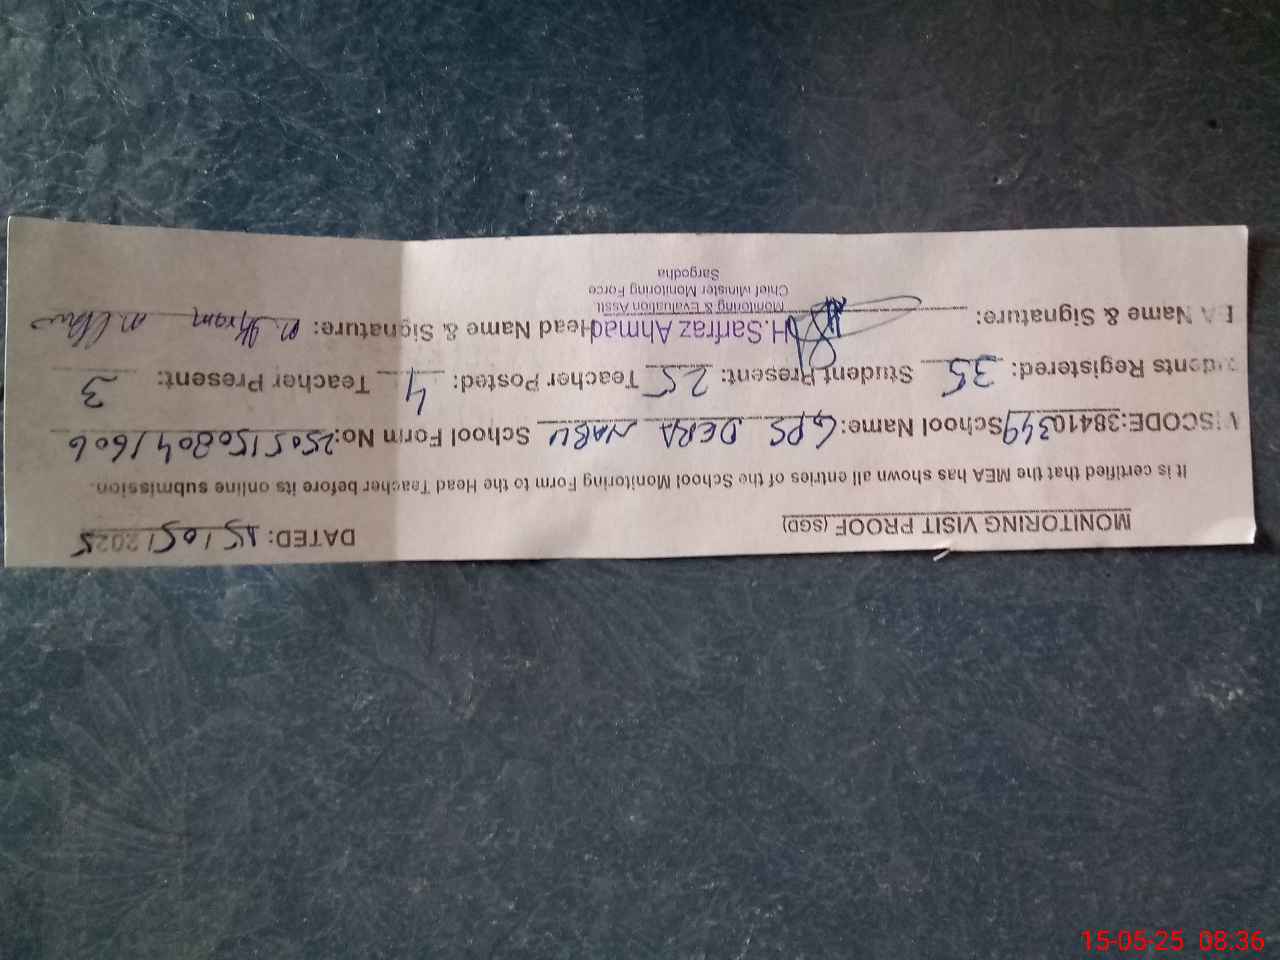 MONITORING VISIT PROOF (SGD) DATED: 15/05/2025
It is certified that the MEA has shown all entries of the School Monitoring Form to the Head Teacher before its online submission.
SCODE: 38410349 School Name: GPS DERA NABU School Form No: 25051508041606
dents Registered: 35 Student Present: 25 Teacher Posted: 4 Teacher Present: 3
A Name & Signature: H.Sarfraz Ahmad Head Name & Signature: M. Akram
Monitoring & Evaluation Asstt.
Chief Minister Monitoring Force
Sargodha
15-05-25 08:36